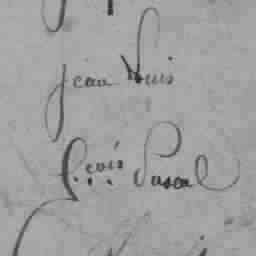 jean Luis
f...cois Pascal